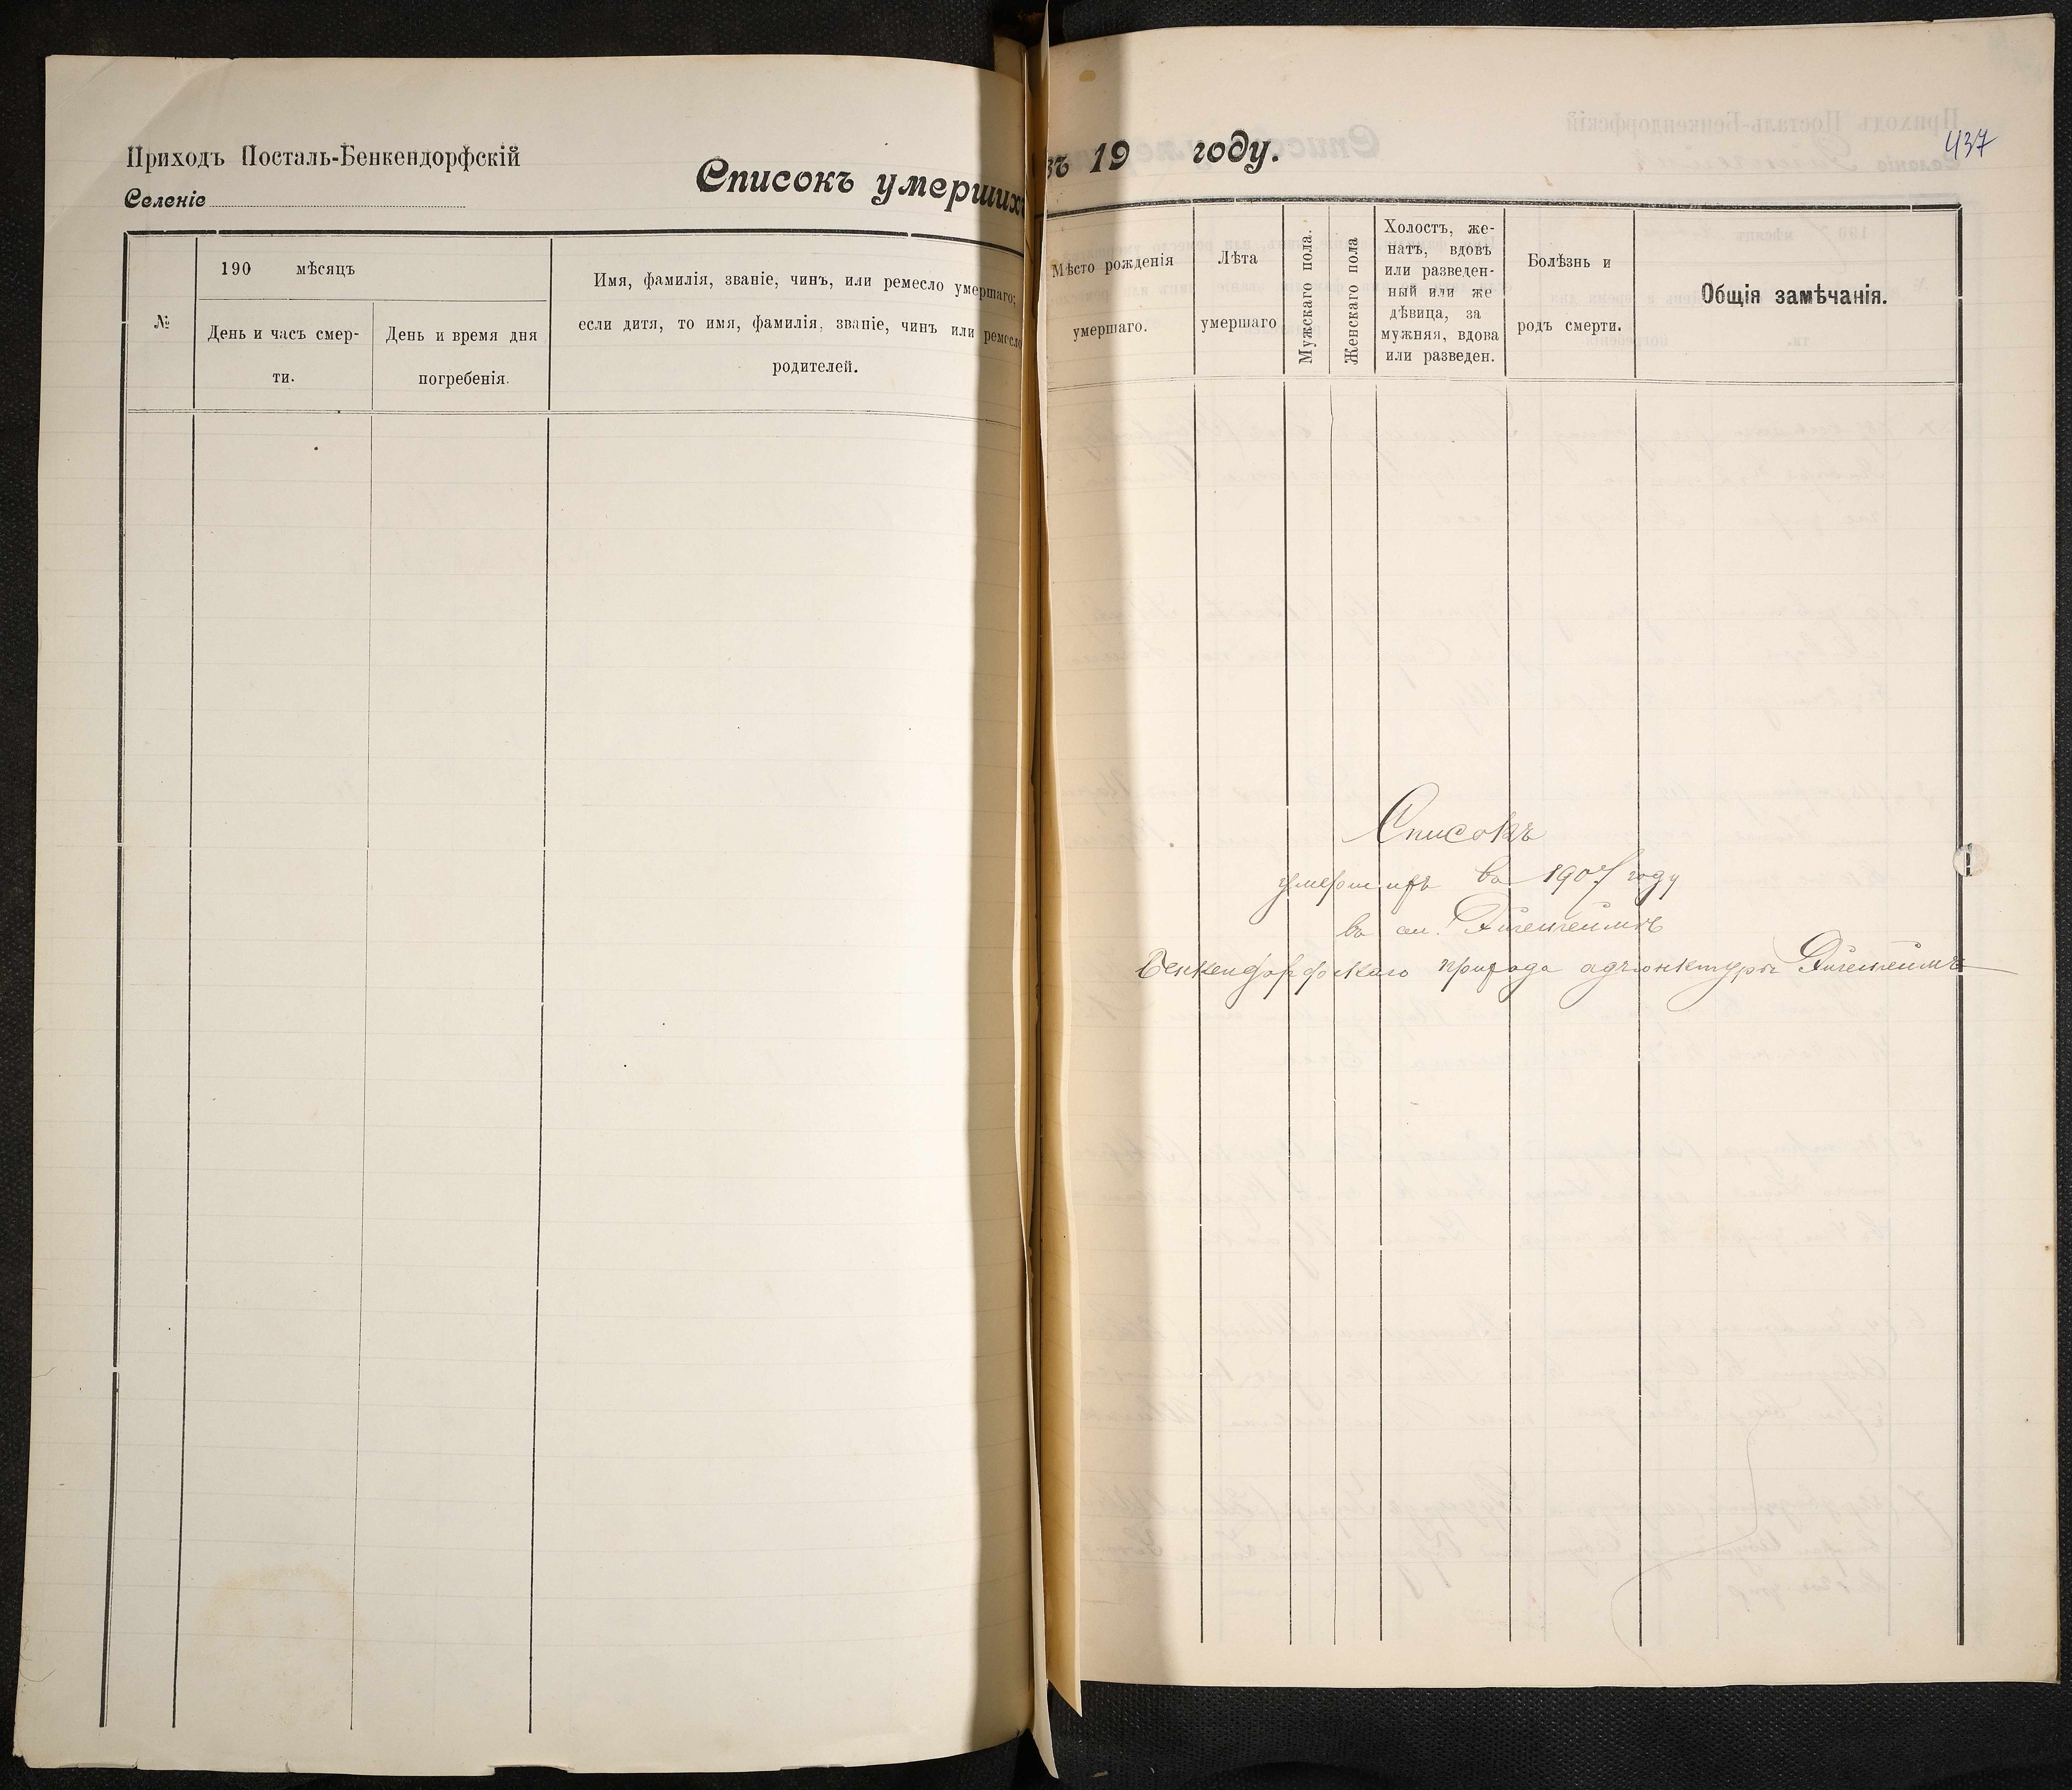 Приходъ Посталь-Бенкендорфскій
Селеніе
Списокъ умершихъ
въ 19 году.
437
№
190 мѣсяцъ
День и часъ смер-
ти.
День и время дня
погребенія.
Имя, фамилія, званіе, чинъ, или ремесло умершаго;
если дитя, то имя, фамилія, званіе, чинъ или ремесло
родителей.
Мѣсто рожденія
умершаго.
Лѣта
умершаго
Мужскаго пола.
Женскаго пола
Холостъ, же-
натъ, вдовъ
или разведен-
ный или же
дѣвица, за
мужняя, вдова
или разведен.
Болѣзнь и
родъ смерти.
Общія замѣчанія.
Списокъ
умершихъ въ 1907 году
въ ам. Эигенгеимъ
Бенкендорфскаго прихода адъюнктуры Эигенгеимъ